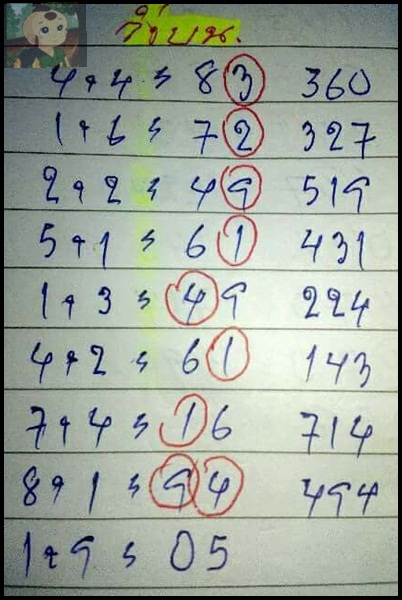 วิ่งบน.
4+4 = 83 360
1+6 = 72 327
2+2 = 49 519
5+1 = 61 431
1+3 = 49 224
4+2 = 61 143
7+4 = 16 714
8+1 = 94 494
1+9 = 05